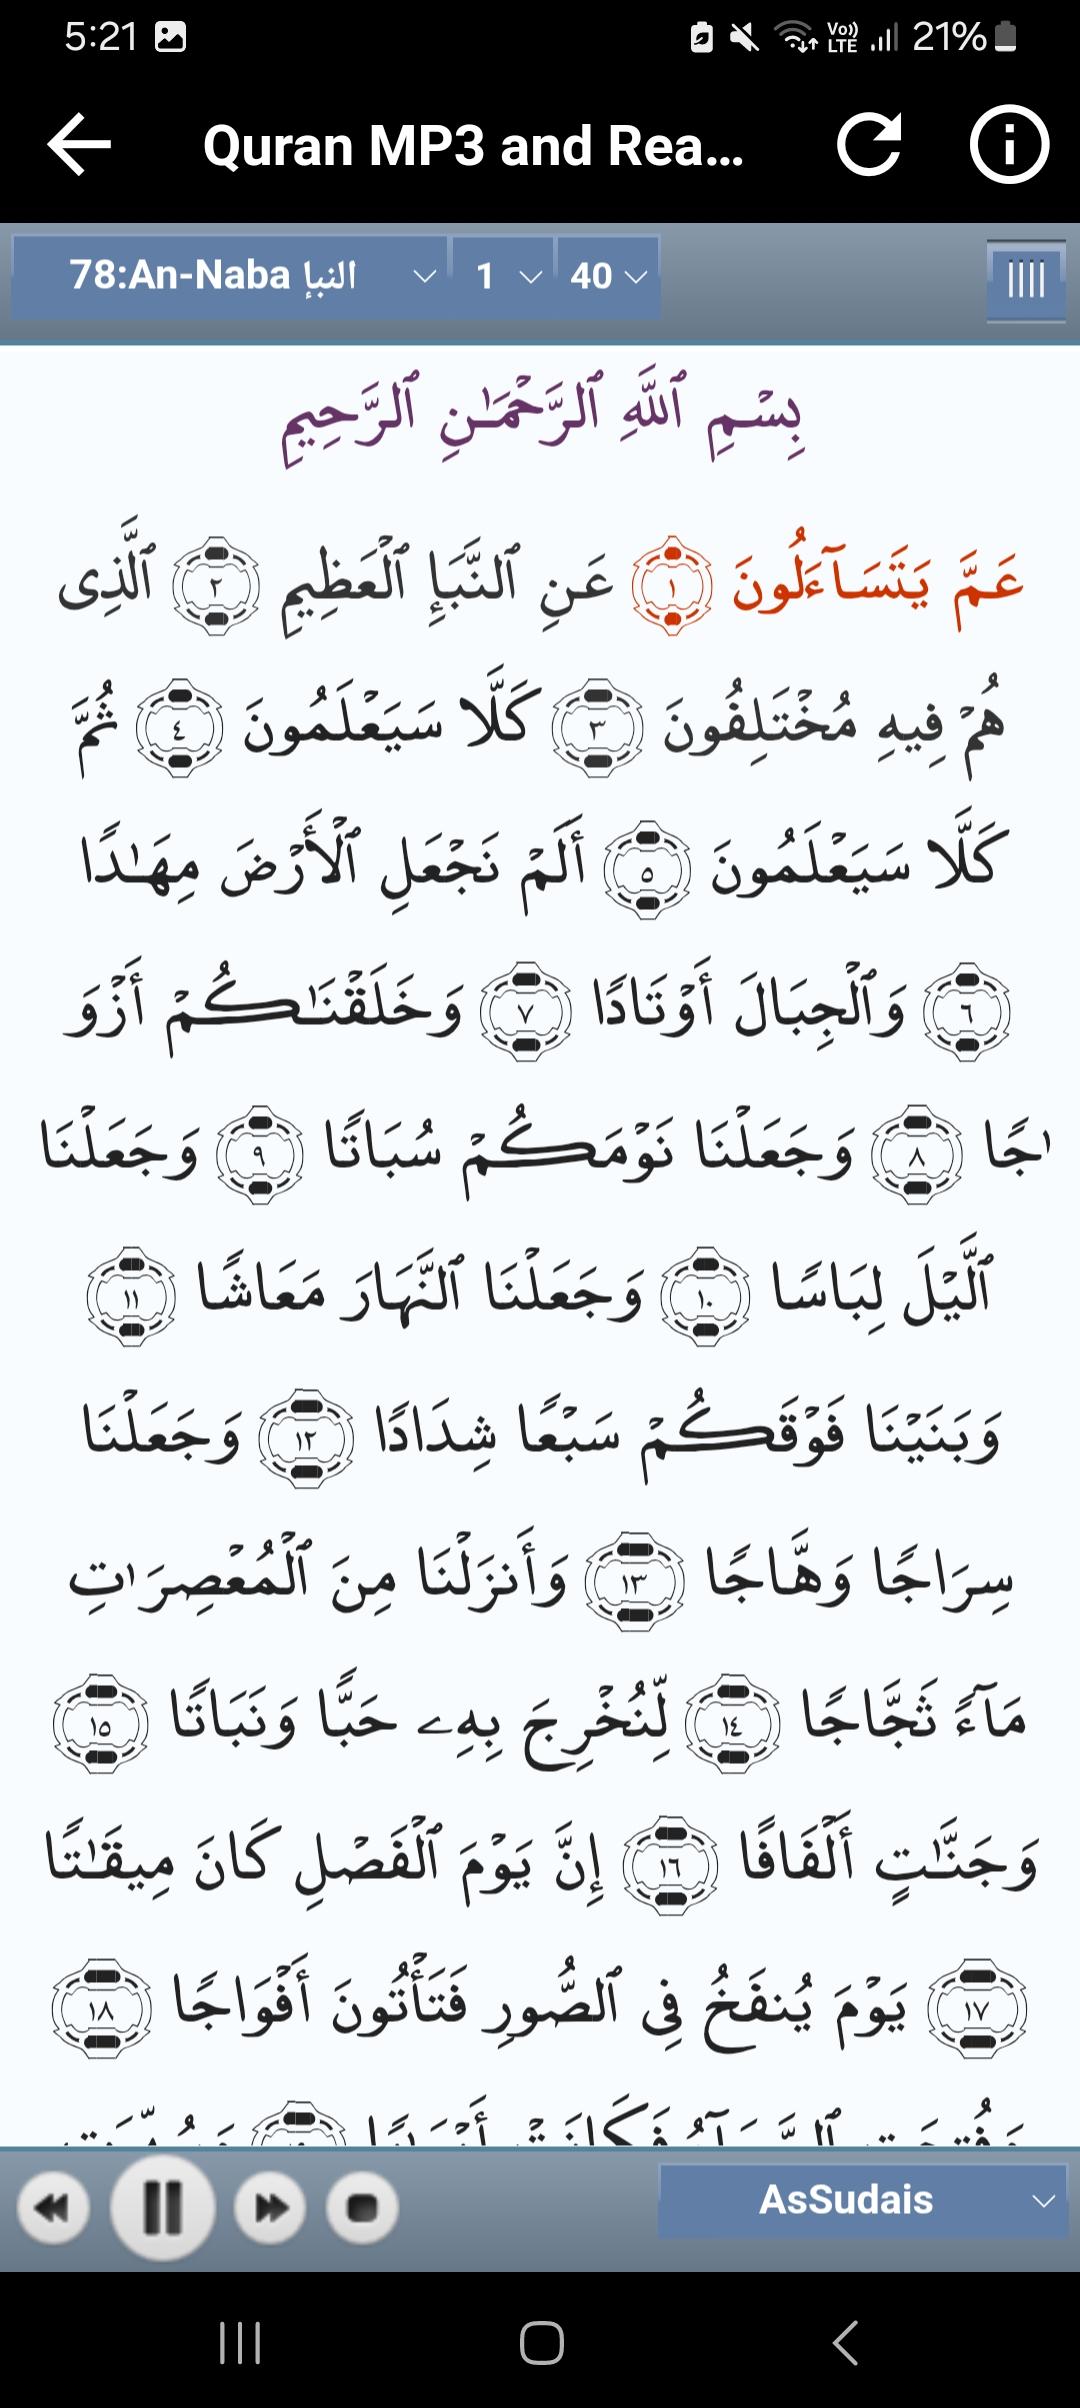 5:21
Vo)) LTE 21%
Quran MP3 and Rea...
78:An-Naba النبإ 1 40
بِسْمِ ٱللَّهِ ٱلرَّحْمَـٰنِ ٱلرَّحِيمِ
عَمَّ يَتَسَآءَلُونَ ١ عَنِ ٱلنَّبَإِ ٱلْعَظِيمِ ٢ ٱلَّذِى
هُمْ فِيهِ مُخْتَلِفُونَ ٣ كَلَّا سَيَعْلَمُونَ ٤ ثُمَّ
كَلَّا سَيَعْلَمُونَ ٥ أَلَمْ نَجْعَلِ ٱلْأَرْضَ مِهَـٰدًا
٦ وَٱلْجِبَالَ أَوْتَادًا ٧ وَخَلَقْنَـٰكُمْ أَزْوَ
ٰجًا ٨ وَجَعَلْنَا نَوْمَكُمْ سُبَاتًا ٩ وَجَعَلْنَا
ٱلَّيْلَ لِبَاسًا ١٠ وَجَعَلْنَا ٱلنَّهَارَ مَعَاشًا ١١
وَبَنَيْنَا فَوْقَكُمْ سَبْعًا شِدَادًا ١٢ وَجَعَلْنَا
سِرَاجًا وَهَّاجًا ١٣ وَأَنزَلْنَا مِنَ ٱلْمُعْصِرَٰتِ
مَآءً ثَجَّاجًا ١٤ لِّنُخْرِجَ بِهِۦ حَبًّا وَنَبَاتًا ١٥
وَجَنَّـٰتٍ أَلْفَافًا ١٦ إِنَّ يَوْمَ ٱلْفَصْلِ كَانَ مِيقَـٰتًا
١٧ يَوْمَ يُنفَخُ فِى ٱلصُّورِ فَتَأْتُونَ أَفْوَاجًا ١٨
AsSudais